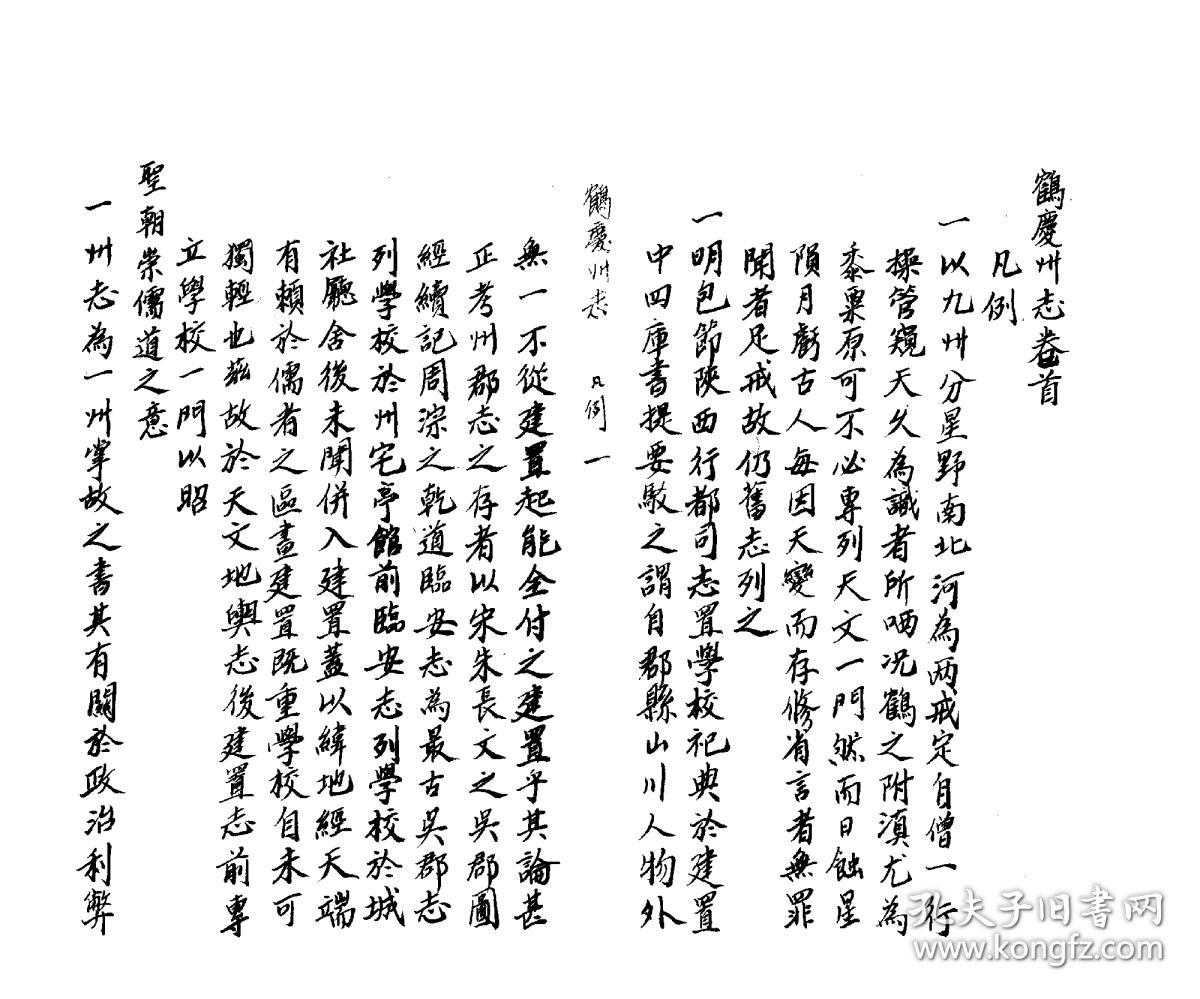 鶴慶州志卷首
凡例
一以九州分星野南北河為两戒定自僧一行
操管窺天久為識者所哂况鶴之附滇尤為
黍粟原可不必專列天文一門然而日蝕星
隕月虧古人每因天變而存修省言者無罪
聞者足戒故仍舊志列之
一明包節陝西行都司志置學校祀典於建置
中四庫書提要駁之謂自郡縣山川人物外
鶴慶州志 凡例 一
無一不從建置起能全付之建置乎其論甚
正考州郡志之存者以宋朱長文之吳郡圖
經續記周淙之乾道臨安志為最古吳郡志
列學校於州宅亭館前臨安志列學校於城
社廳舍後未聞併入建置蓋以緯地經天端
有賴於儒者之區畫建置既重學校自未可
獨輕也茲故於天文地輿志後建置志前專
立學校一門以昭
聖朝崇儒道之意
一州志為一州掌故之書其有關於政治利弊
孔夫子旧书网
www.kongfz.com